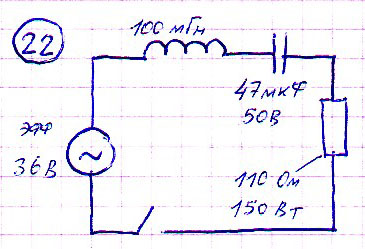 22
100 мГн
47мкФ
50В
эфф
36В
110 Ом
150 Вт